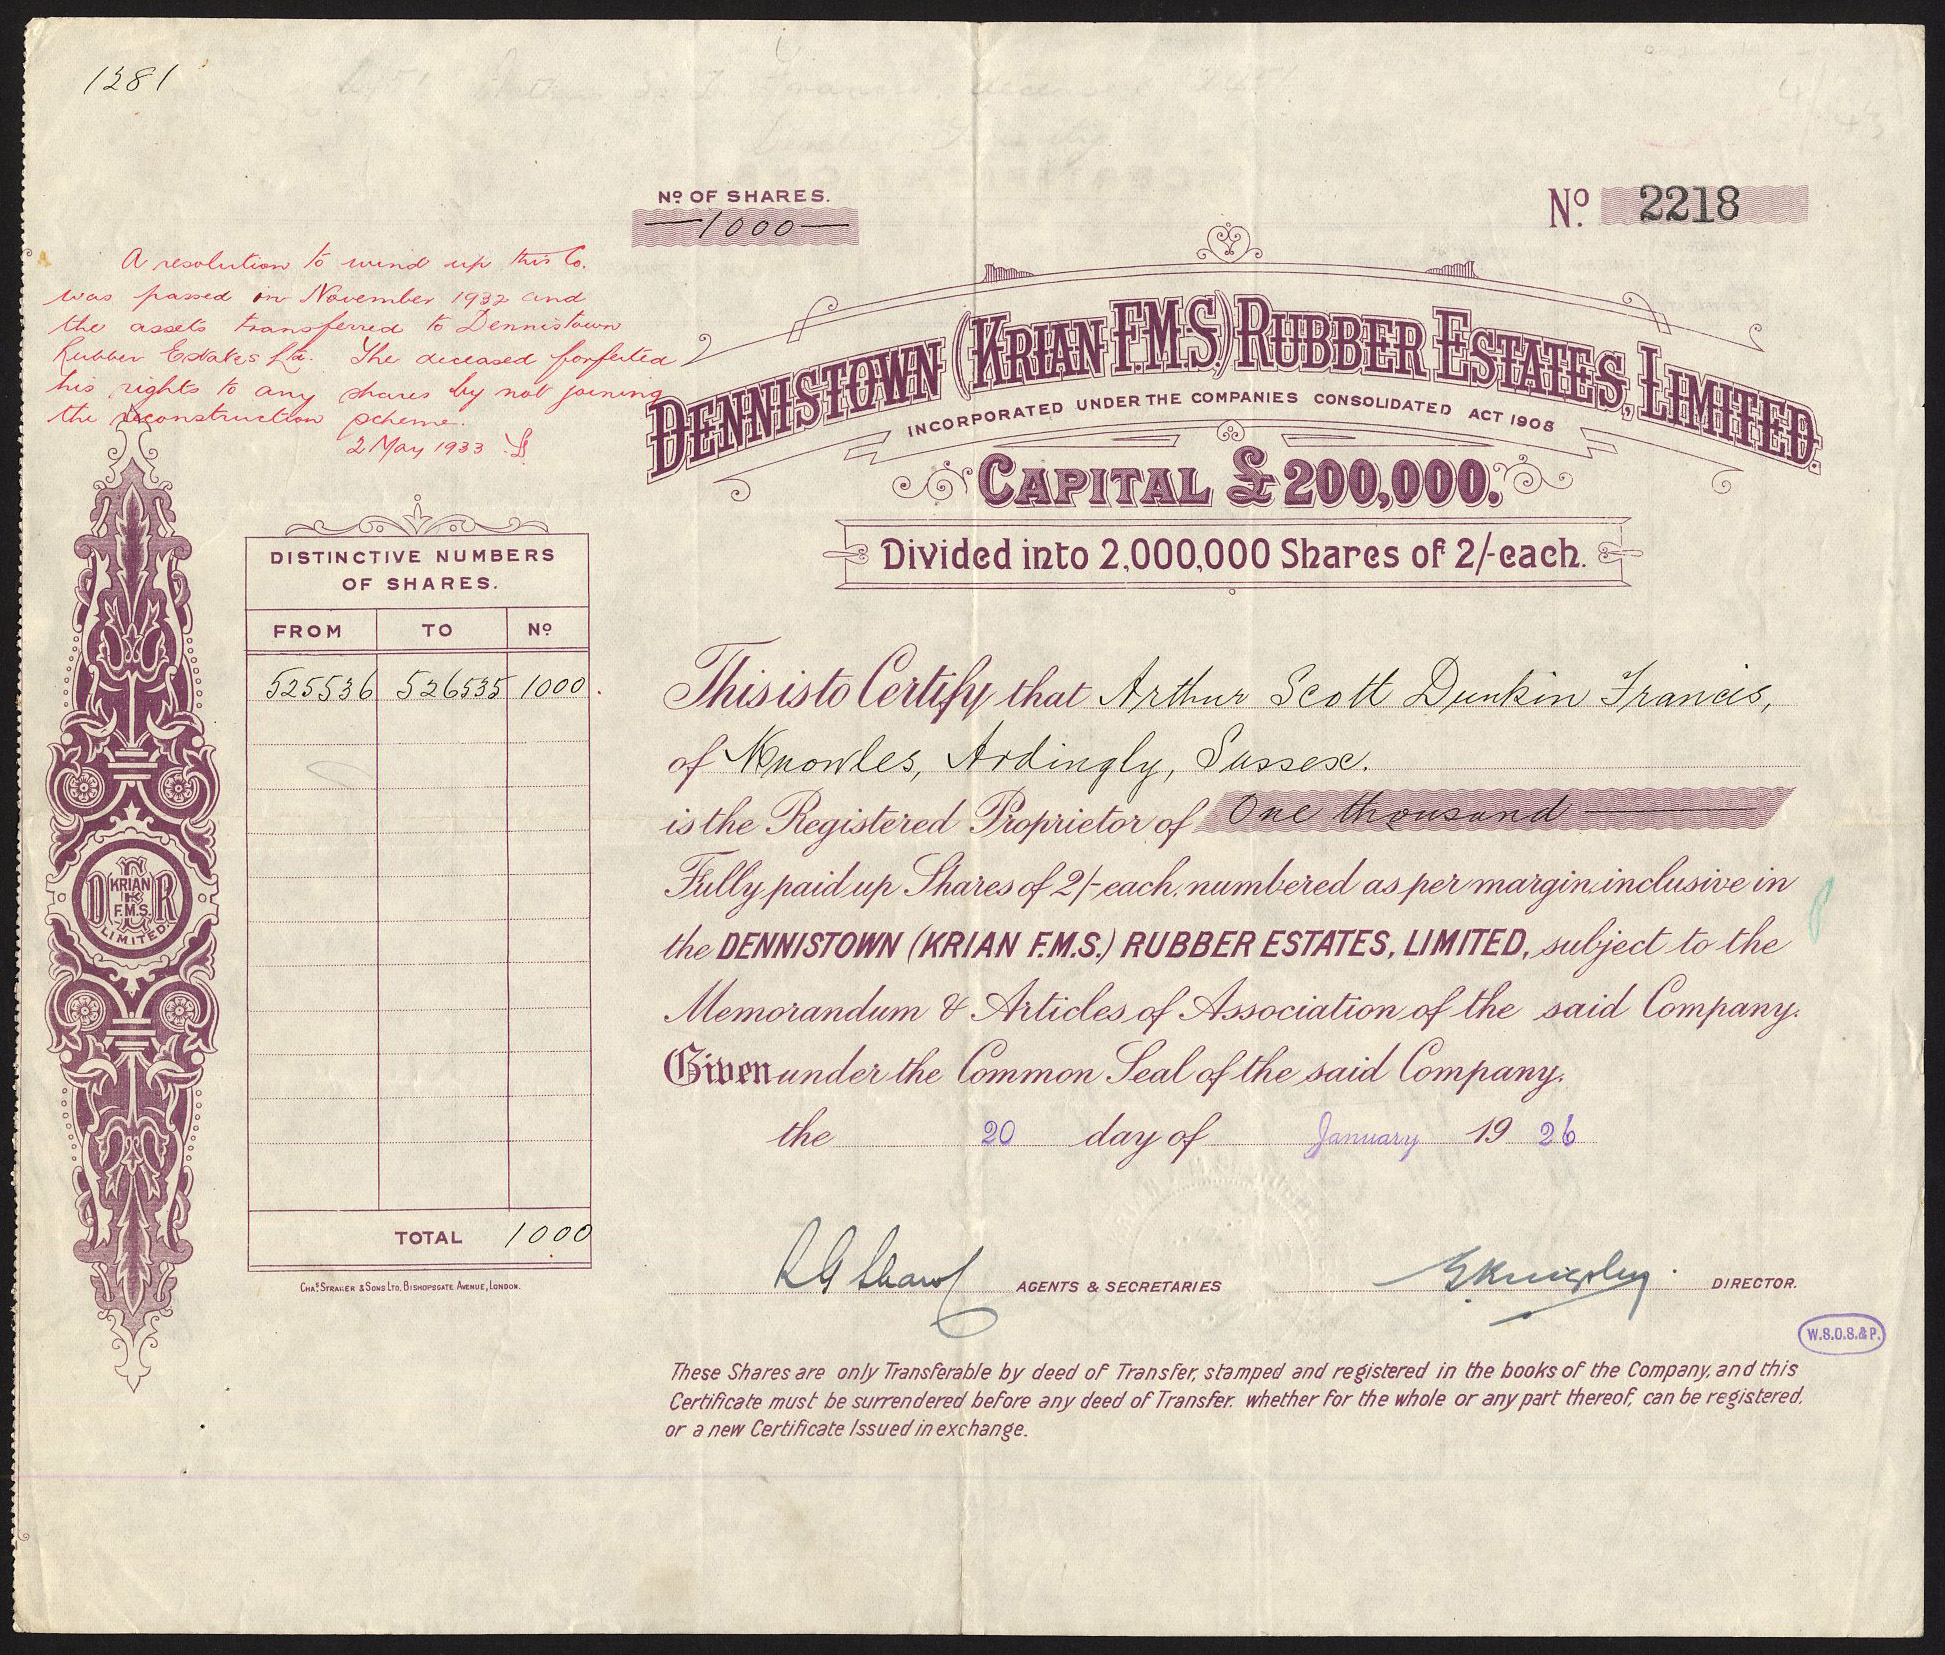 1281
Nº OF SHARES.
1000
Nº. 2218
A resolution to wind up this Co.
was passed in November 1932 and
the assets transferred to Dennistown
Rubber Estates Ltd. The deceased forfeited
his rights to any shares by not joining
the reconstruction scheme.
2 May 1933
DENNISTOWN (KRIAN F.M.S.) RUBBER ESTATES, LIMITED.
INCORPORATED UNDER THE COMPANIES CONSOLIDATED ACT 1908
CAPITAL £200,000.
Divided into 2,000,000 Shares of 2/- each.
DISTINCTIVE NUMBERS
OF SHARES.
FROM TO Nº
525536 526535 1000
TOTAL 1000
CHAS. STRAKER & SONS LTD, BISHOPSGATE AVENUE, LONDON.
D KRIAN R
F.M.S.
LIMITED.
This is to Certify that Arthur Scott Dunkin Francis,
of Knowles, Ardingly, Sussex.
is the Registered Proprietor of One thousand
Fully paid up Shares of 2/- each, numbered as per margin inclusive in
the DENNISTOWN (KRIAN F.M.S.) RUBBER ESTATES, LIMITED, subject to the
Memorandum & Articles of Association of the said Company.
Given under the Common Seal of the said Company.
the 20 day of January 1926
AGENTS & SECRETARIES
DIRECTOR.
W.S.O.S.&P.
These Shares are only Transferable by deed of Transfer, stamped and registered in the books of the Company, and this
Certificate must be surrendered before any deed of Transfer. whether for the whole or any part thereof, can be registered,
or a new Certificate Issued in exchange.